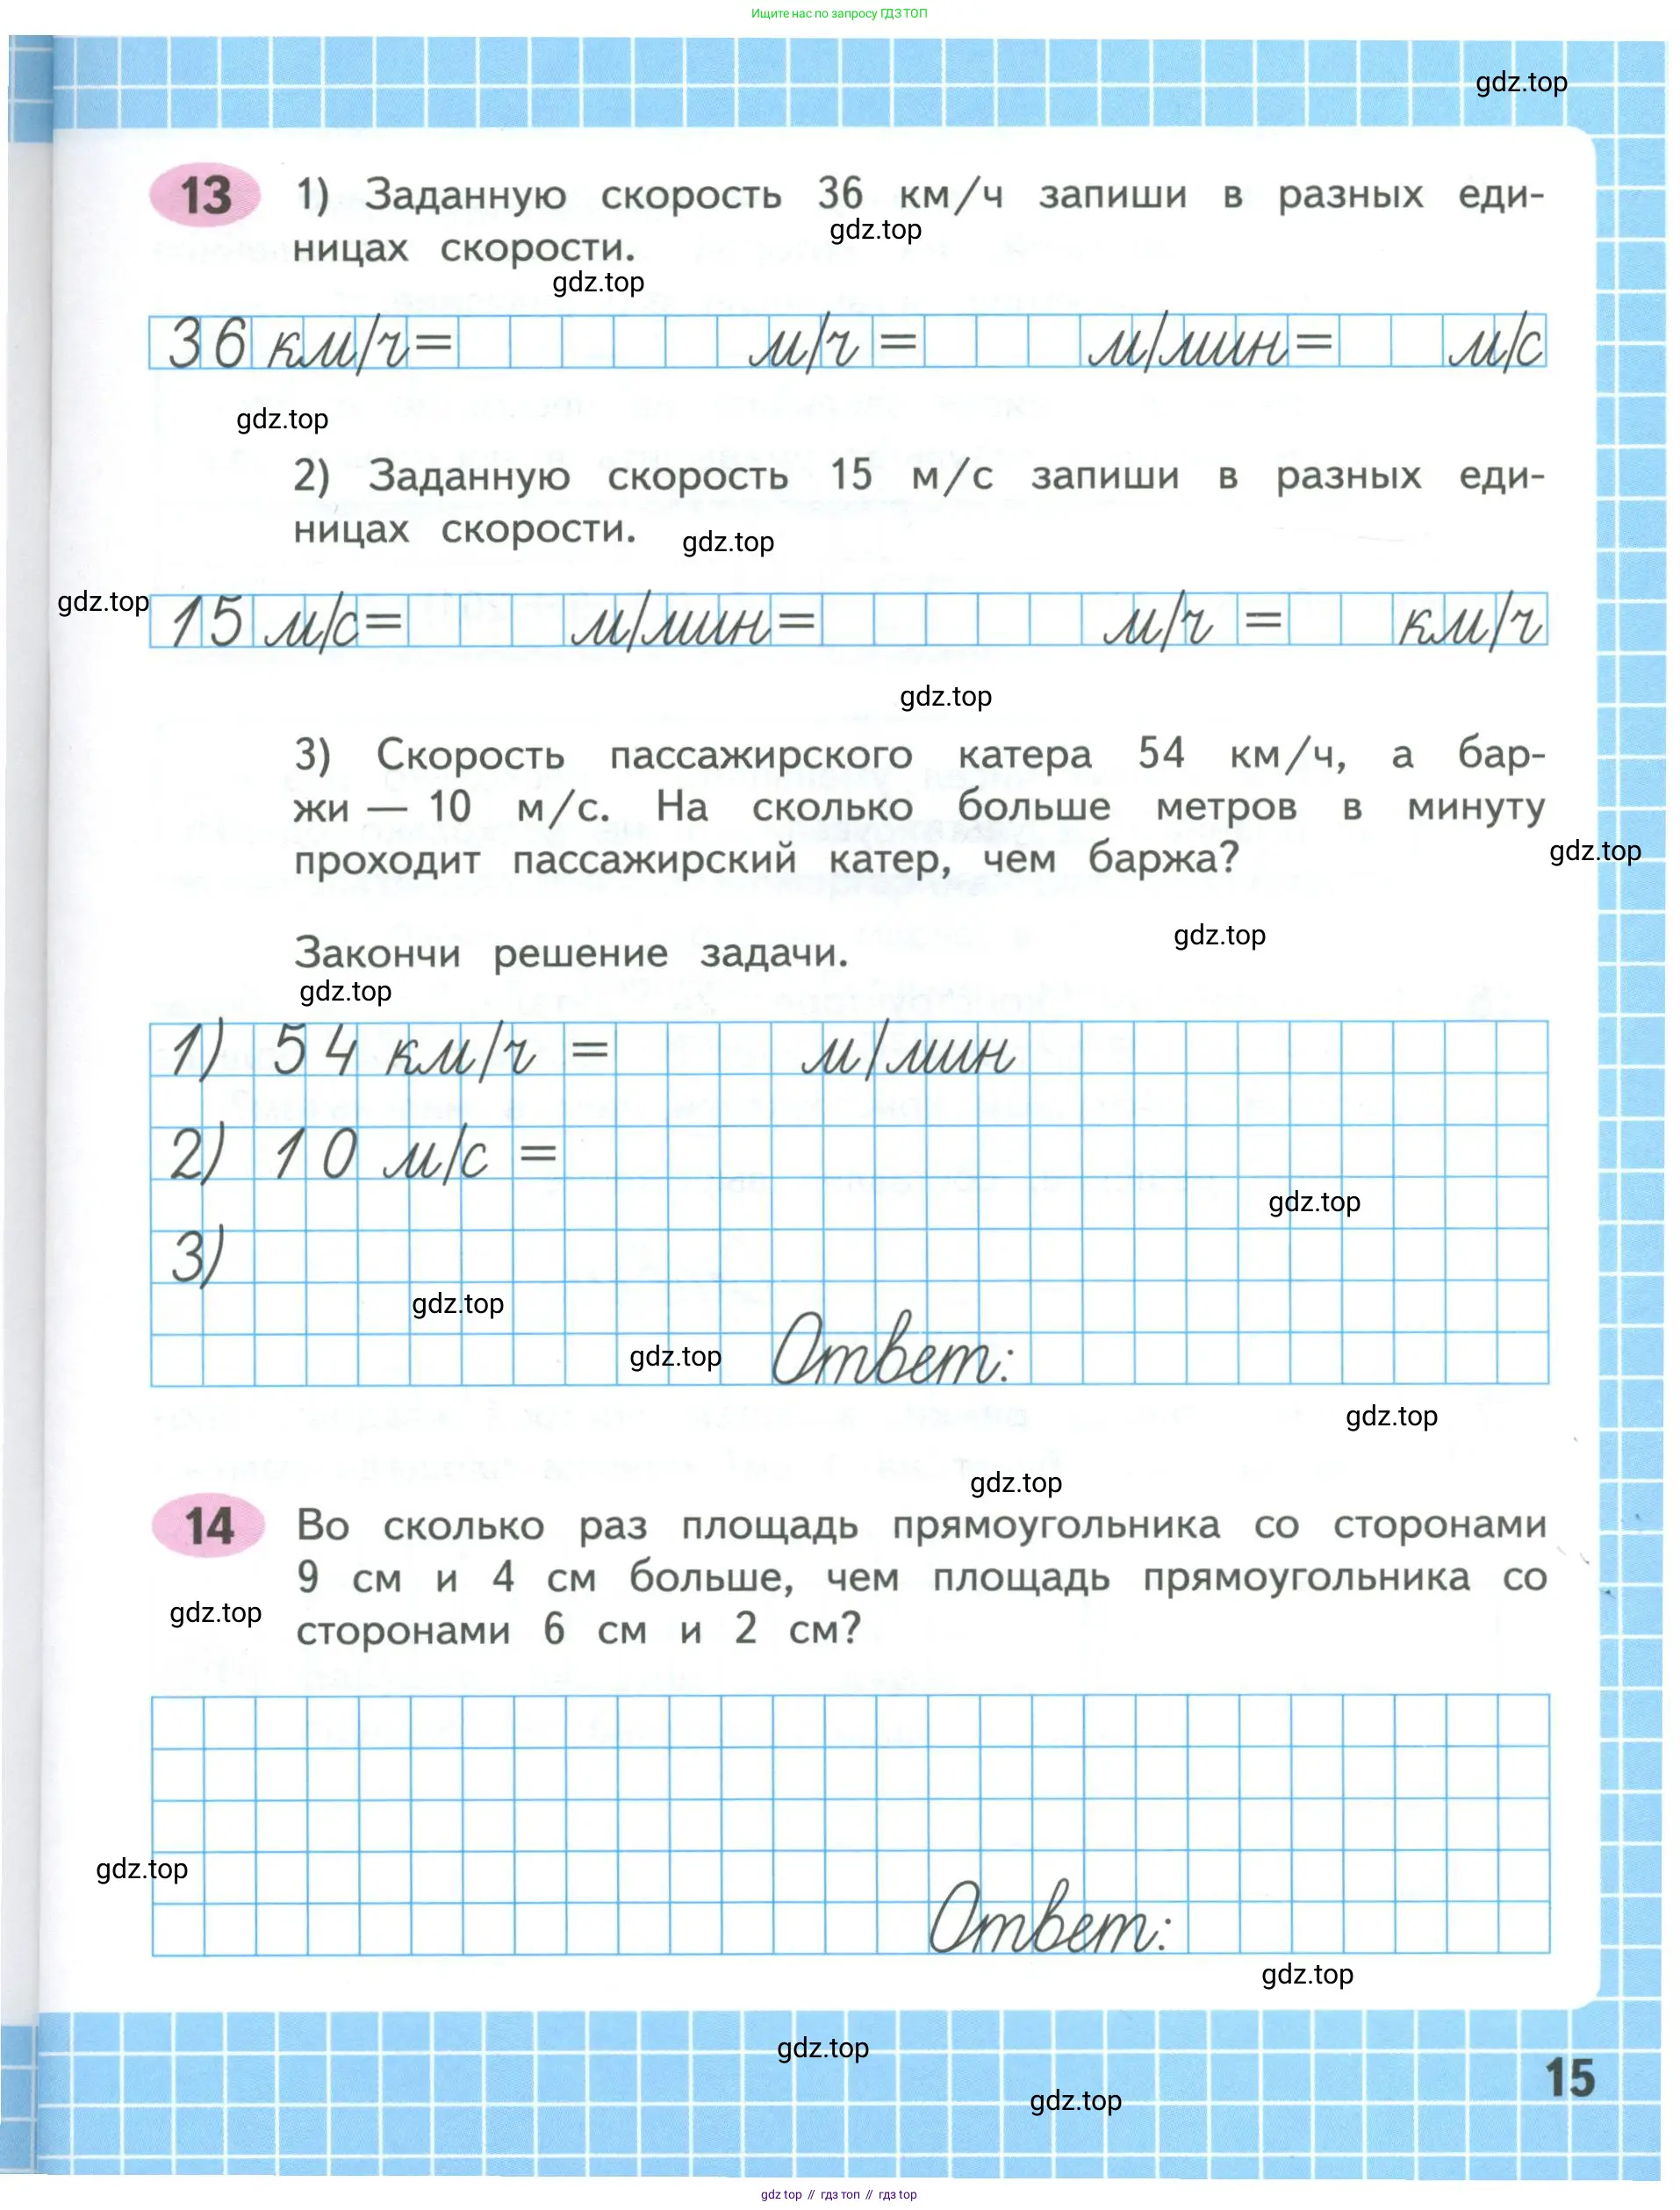 Ищите нас по запросу ГДЗ ТОП
gdz.top
13 1) Заданную скорость 36 км/ч запиши в разных еди-
gdz.top
ницах скорости.
gdz.top
36 км/ч= м/ч = м/мин= м/с
gdz.top
2) Заданную скорость 15 м/с запиши в разных еди-
ницах скорости.
gdz.top
gdz.top
15 м/с= м/мин= м/ч = км/ч
gdz.top
3) Скорость пассажирского катера 54 км/ч, а бар-
жи — 10 м/с. На сколько больше метров в минуту
проходит пассажирский катер, чем баржа?
gdz.top
gdz.top
Закончи решение задачи.
gdz.top
1) 54 км/ч = м/мин
2) 10 м/с =
gdz.top
3)
gdz.top
gdz.top
Ответ:
gdz.top
gdz.top
14 Во сколько раз площадь прямоугольника со сторонами
9 см и 4 см больше, чем площадь прямоугольника со
gdz.top
сторонами 6 см и 2 см?
gdz.top
Ответ:
gdz.top
gdz.top
15
gdz.top
gdz top // гдз топ // гдз top